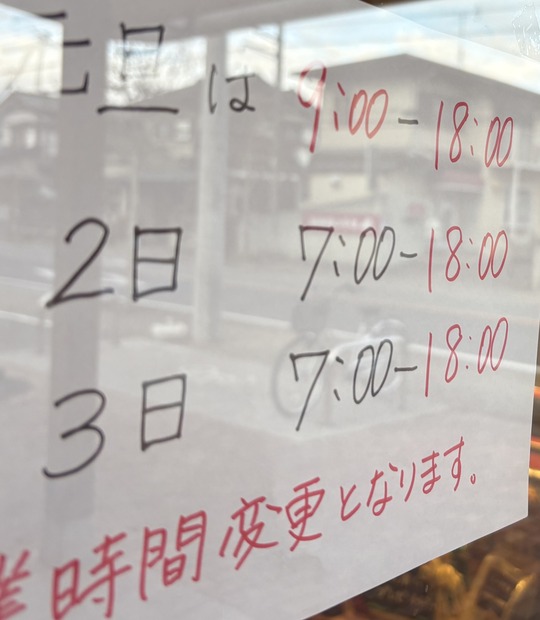 元旦は 9:00-18:00
2日 7:00-18:00
3日 7:00-18:00
業時間変更となります。